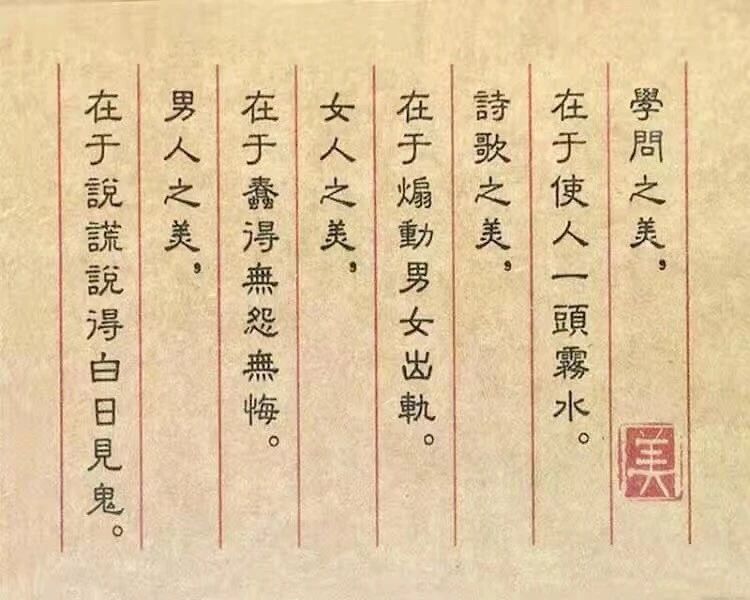 學問之美，
在于使人一頭霧水。
詩歌之美，
在于煽動男女出軌。
女人之美，
在于蠢得無怨無悔。
男人之美，
在于說謊說得白日見鬼。
美